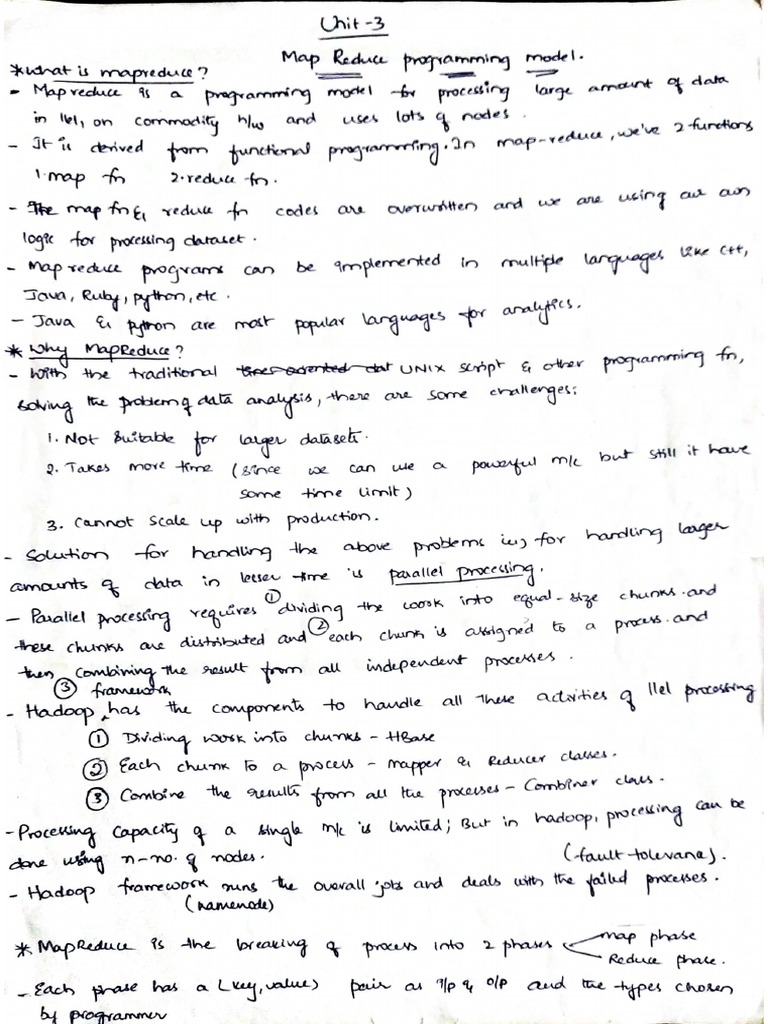 Unit-3
Map Reduce programming model.
*What is mapreduce?
- Mapreduce is a programming model for processing large amount of data
in llel, on commodity h/w and uses lots of nodes.
- It is derived from functional programming. In map-reduce, we've 2 functions
1. map fn 2. reduce fn.
- The map fn & reduce fn codes are overwritten and we are using our own
logic for processing dataset.
- Map reduce programs can be implemented in multiple languages like C++,
Java, Ruby, python, etc.
- Java & python are most popular languages for analytics.
* Why MapReduce?
- With the traditional UNIX script & other programming fn,
solving the problem of data analysis, there are some challenges:
1. Not Suitable for larger datasets.
2. Takes more time (since we can use a powerful m/c but still it have
some time limit)
3. Cannot scale up with production.
- Solution for handling the above problems i.e., for handling larger
amounts of data in lesser time is parallel processing.
- Parallel processing requires ① dividing the work into equal-size chunks and
these chunks are distributed and ② each chunk is assigned to a process and
then combining the result from all independent processes.
③ framework
- Hadoop ^ has the components to handle all these activities of llel processing
① Dividing work into chunks - HBase
② Each chunk to a process - mapper & Reducer classes.
③ Combine the results from all the processes - Combiner class.
- Processing capacity of a single m/c is limited; But in hadoop, processing can be
done using n-no. of nodes. (fault tolerance).
- Hadoop framework runs the overall jobs and deals with the failed processes.
(namenode)
* MapReduce is the breaking of process into 2 phases map phase
Reduce phase.
- Each phase has a (key, value) pair as i/p & o/p and the types chosen
by programmer